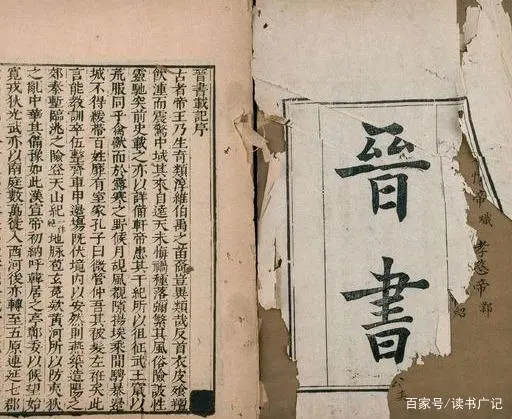 晉書載記序
古者帝王乃生奇類淳維伯禹之苗裔豈異類哉反首衣皮飡羶
飲湩而震驚中域其來自遠天未悔禍種落彌繁其風俗險詖性
靈馳突前史載之亦以詳備軒帝患其干紀所以徂征武王竄以
荒服同乎禽獸而於露寒之野候月覘風覩隙揚埃乘間騁暴邊
城不得緩帶百姓靡有室家孔子曰微管仲吾其被髮左衽矣此
言能教訓卒伍整齊車甲邊場既伏境内以安然則燕築造陽之
郊秦塹臨洮之險登天山紀一作絕地脉苞玄菟款黃河所以防夷狄
之亂中華其備豫如此漢宣帝初納呼韓居之亭鄣委以候望始
寬戎狄光武亦以南庭數萬徙入西河後亦轉至五原連延七郡
晉書
帝熾 孝愍帝鄴
百家号/读书广记